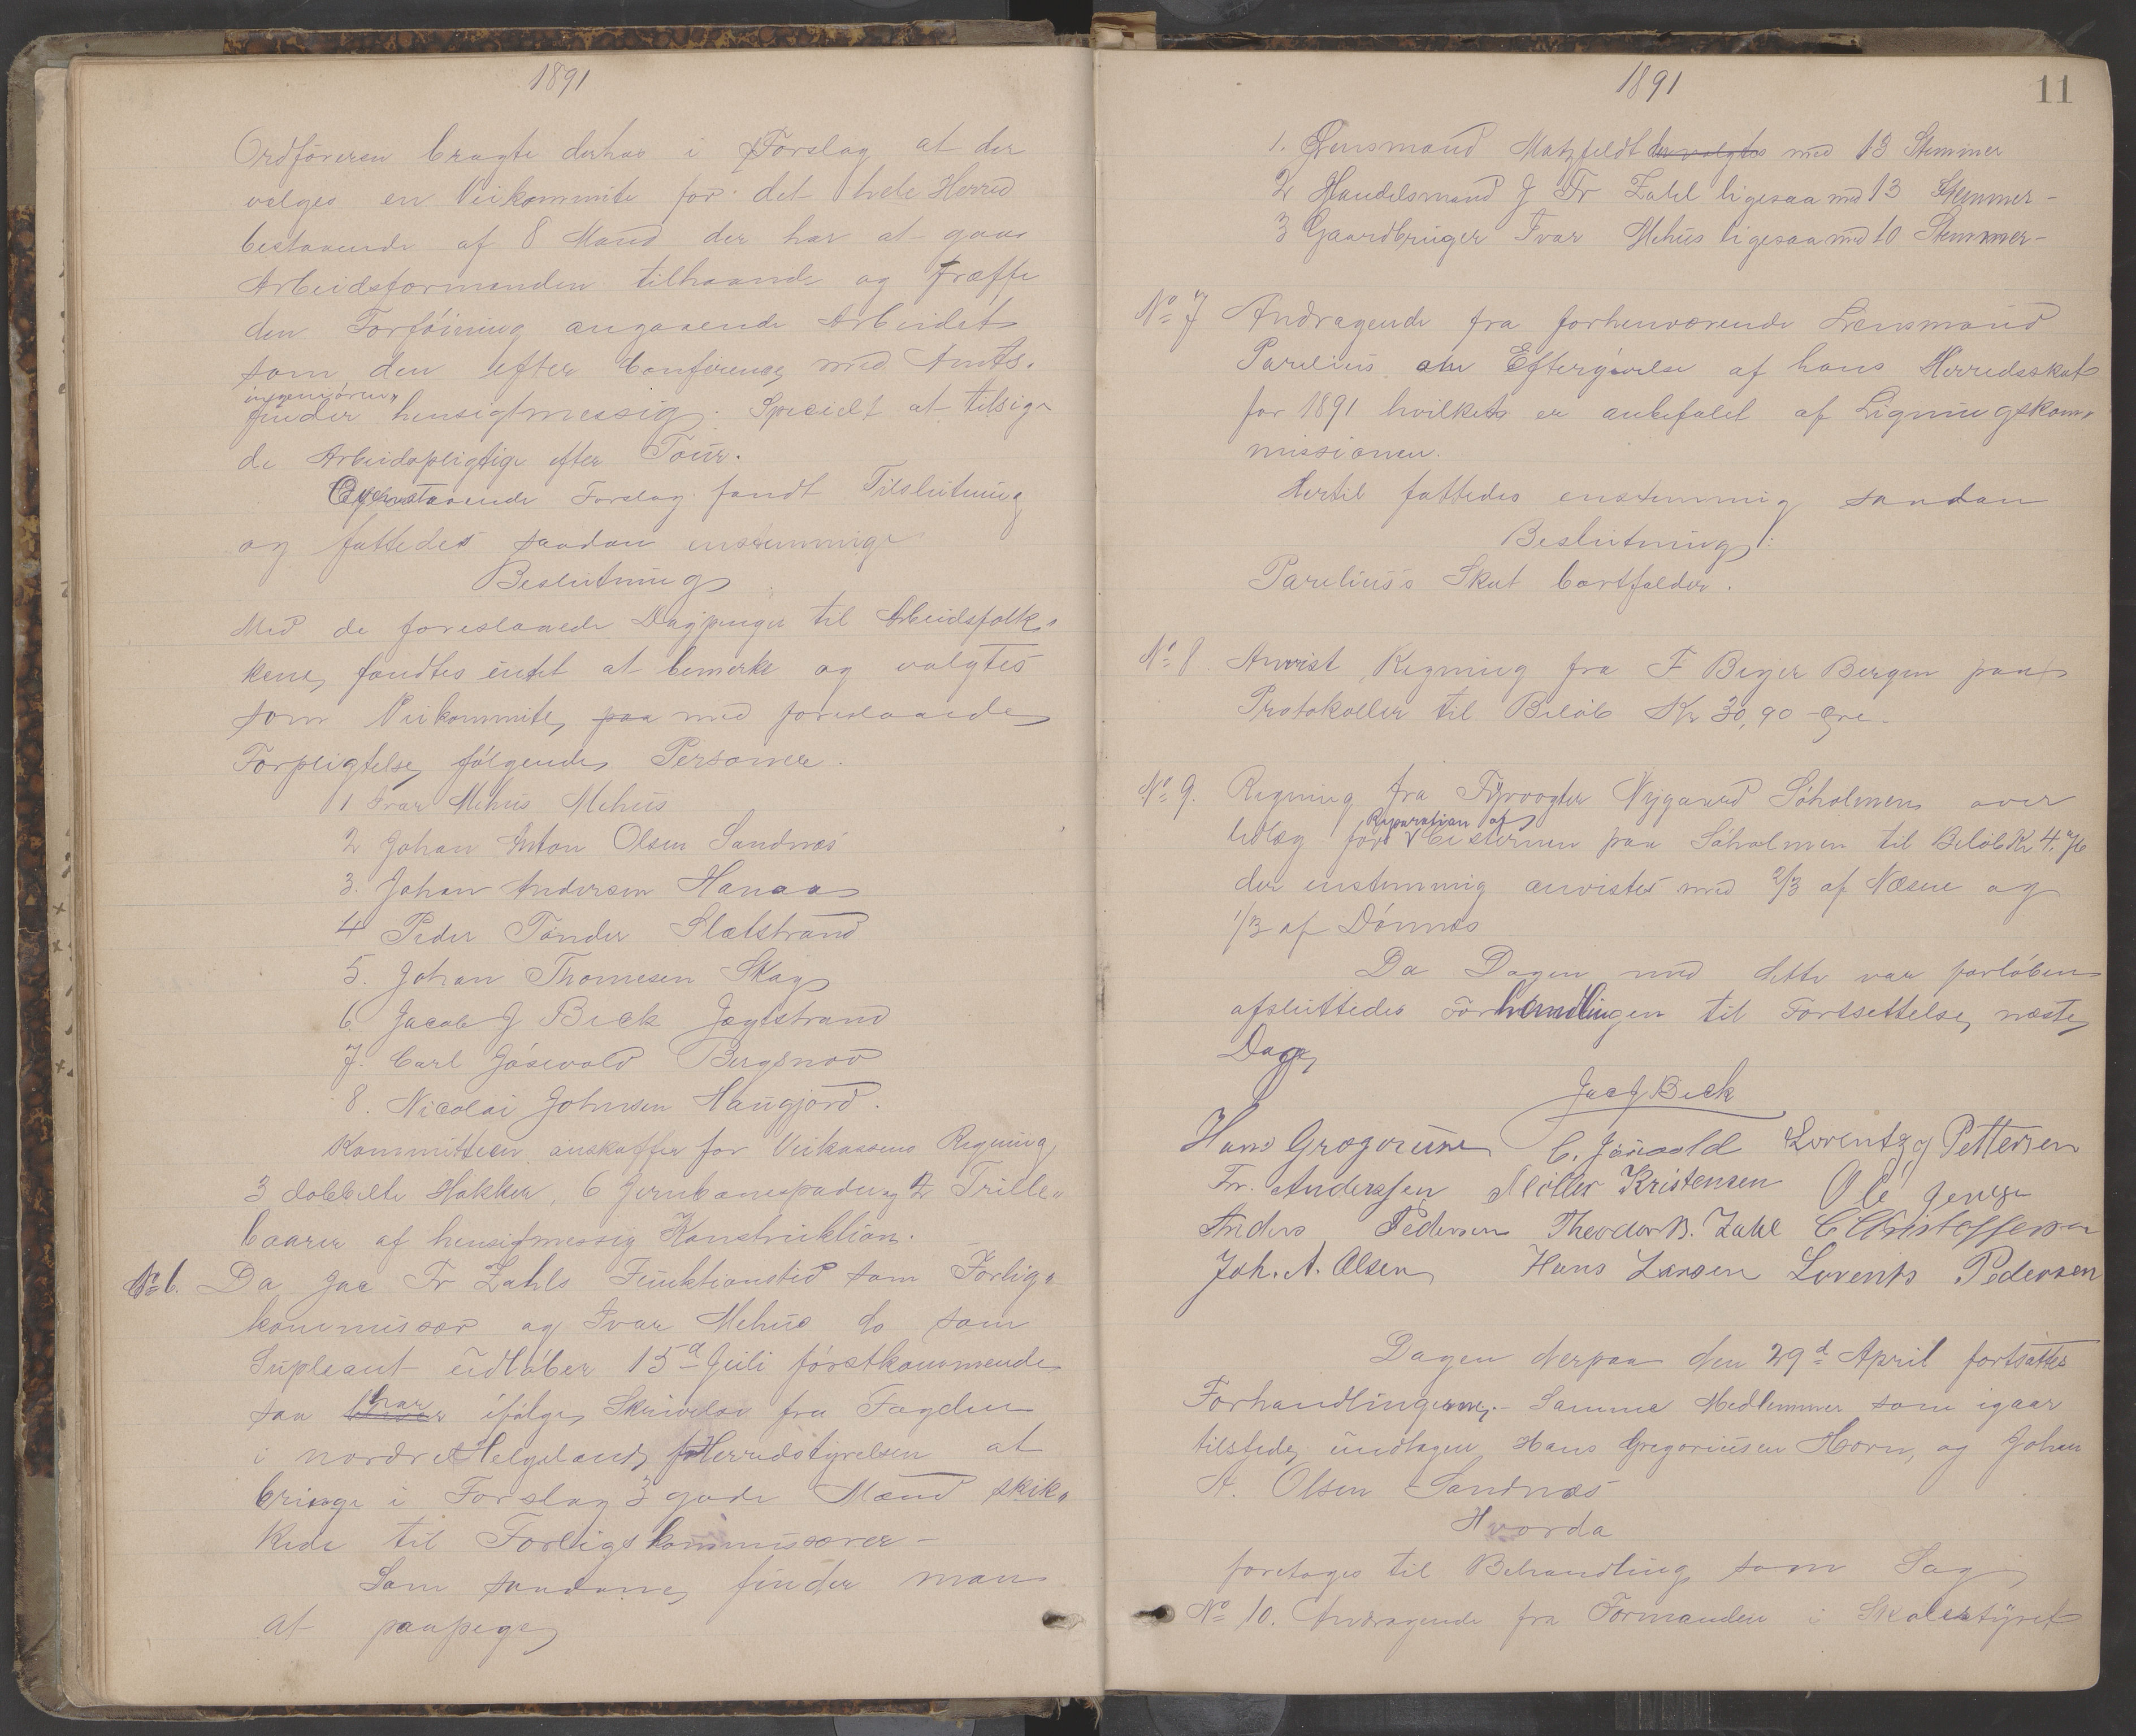 1891
Ordföreren bragte derhos i Forslag at der
valges en Veikommite for det hele Herred
bestaaende af 8 Mand der har at gaa
Arbeidsformanden tilhaande og træffe
den Forföining angaaende Arbeidet
som den efter Conference med Amts-
ingeniören
finder hensigtmessig. Specielt at tilsige
de Arbeidspligtige efter Tour.
Ovenstaaende Forslag fandt Tilslutning
og fattedes saadan enstemmige
Beslutning
Med de foreslaaede Dagpenge til Arbeidsfolk-
kene fandtes intet at bemerke og valgtes
som Veikommite, paa med foreslaaede
Forpligtelse følgende Personer.
1 Ivar Mehus Mehus
2 Johan Anton Olsen Sandnæs
3. Johan Andersen Hanaa
4 Peder Tønder Sletstrand
5. Johan Thomesen Skag
6. Jacob J Bech Jægtstrand
7. Carl Jösevold Bergsnov
8. Nicolai Johnsen Haugjord.
Kommitteen anskaffer for Veikassens Regning
3 dobbelte Hakker, 6 Jernbanespader og 2 Trille-
baarer af hensigtmessig Konstruktion.
No 6. Da Jac Fr Zahls Funktionstid som Forligs-
kommissær og Ivar Mehus do som
Supleant udlöber 15d Juli förstkommende
saa har ifölge Skrivelse fra Fogden
i nordre Helgeland Herredstyrelsen at
bringe i Forslag 3 gode Mænd skik-
kede til Forligskommissærer -
Som saadanne finder man
at paapege
1891
11
1. Lensmand Motzfeldt der valgtes med 13 Stemmer
2 Handelsmand J Fr Zahl ligesaa med 13 Stemmer -
3 Gaardbruger Ivar Mehus ligesaa med 10 Stemmer -
No 7 Andragende fra forhenværende Lensmand
Parelius om Eftergivelse af hans Herredsskat
for 1891 hvilket er anbefalet af Ligningskom-
missionen.
Hertil fattedes enstemmig saadan
Beslutning:
Parelius's Skat bortfalder.
No 8. Anvist Regning fra F Beyer Bergen paa
Protokoller til Beløb Kr 30,90 Øre.
No 9. Regning fra Fyrvogter Nygaard Söholmen over
Reparation af
Udlæg for Cisternen paa Söholmen til Belöb Kr 4.76
der enstemmig anvistes med 2/3 af Næsne og
1/3 af Dönnes
Da Dagen med dette var forlöben
afsluttedes Forhandlingen til Fortsettelse næste
Dag
Jac J Bech
Hans Gregoriusen C. Jösevold Lorentz J Pettersen
Fr. Anderssen Möller Kristensen Ole Jensen
Anders Pedersen Theodor B. Zahl C Christoffersen
Joh. A. Olsen Hans Larsen Lorents Pedersen
Dagen derpaa den 29d April fortsattes
Forhandlingerne. - Samme Medlemmer som igaar
tilstede, undtagen Hans Gregoriusen Horn, og Johan
A. Olsen Sandnæs
Hvorda
foretoges til Behandling som Sag
No 10. Andragende fra Formanden i Skolestyret